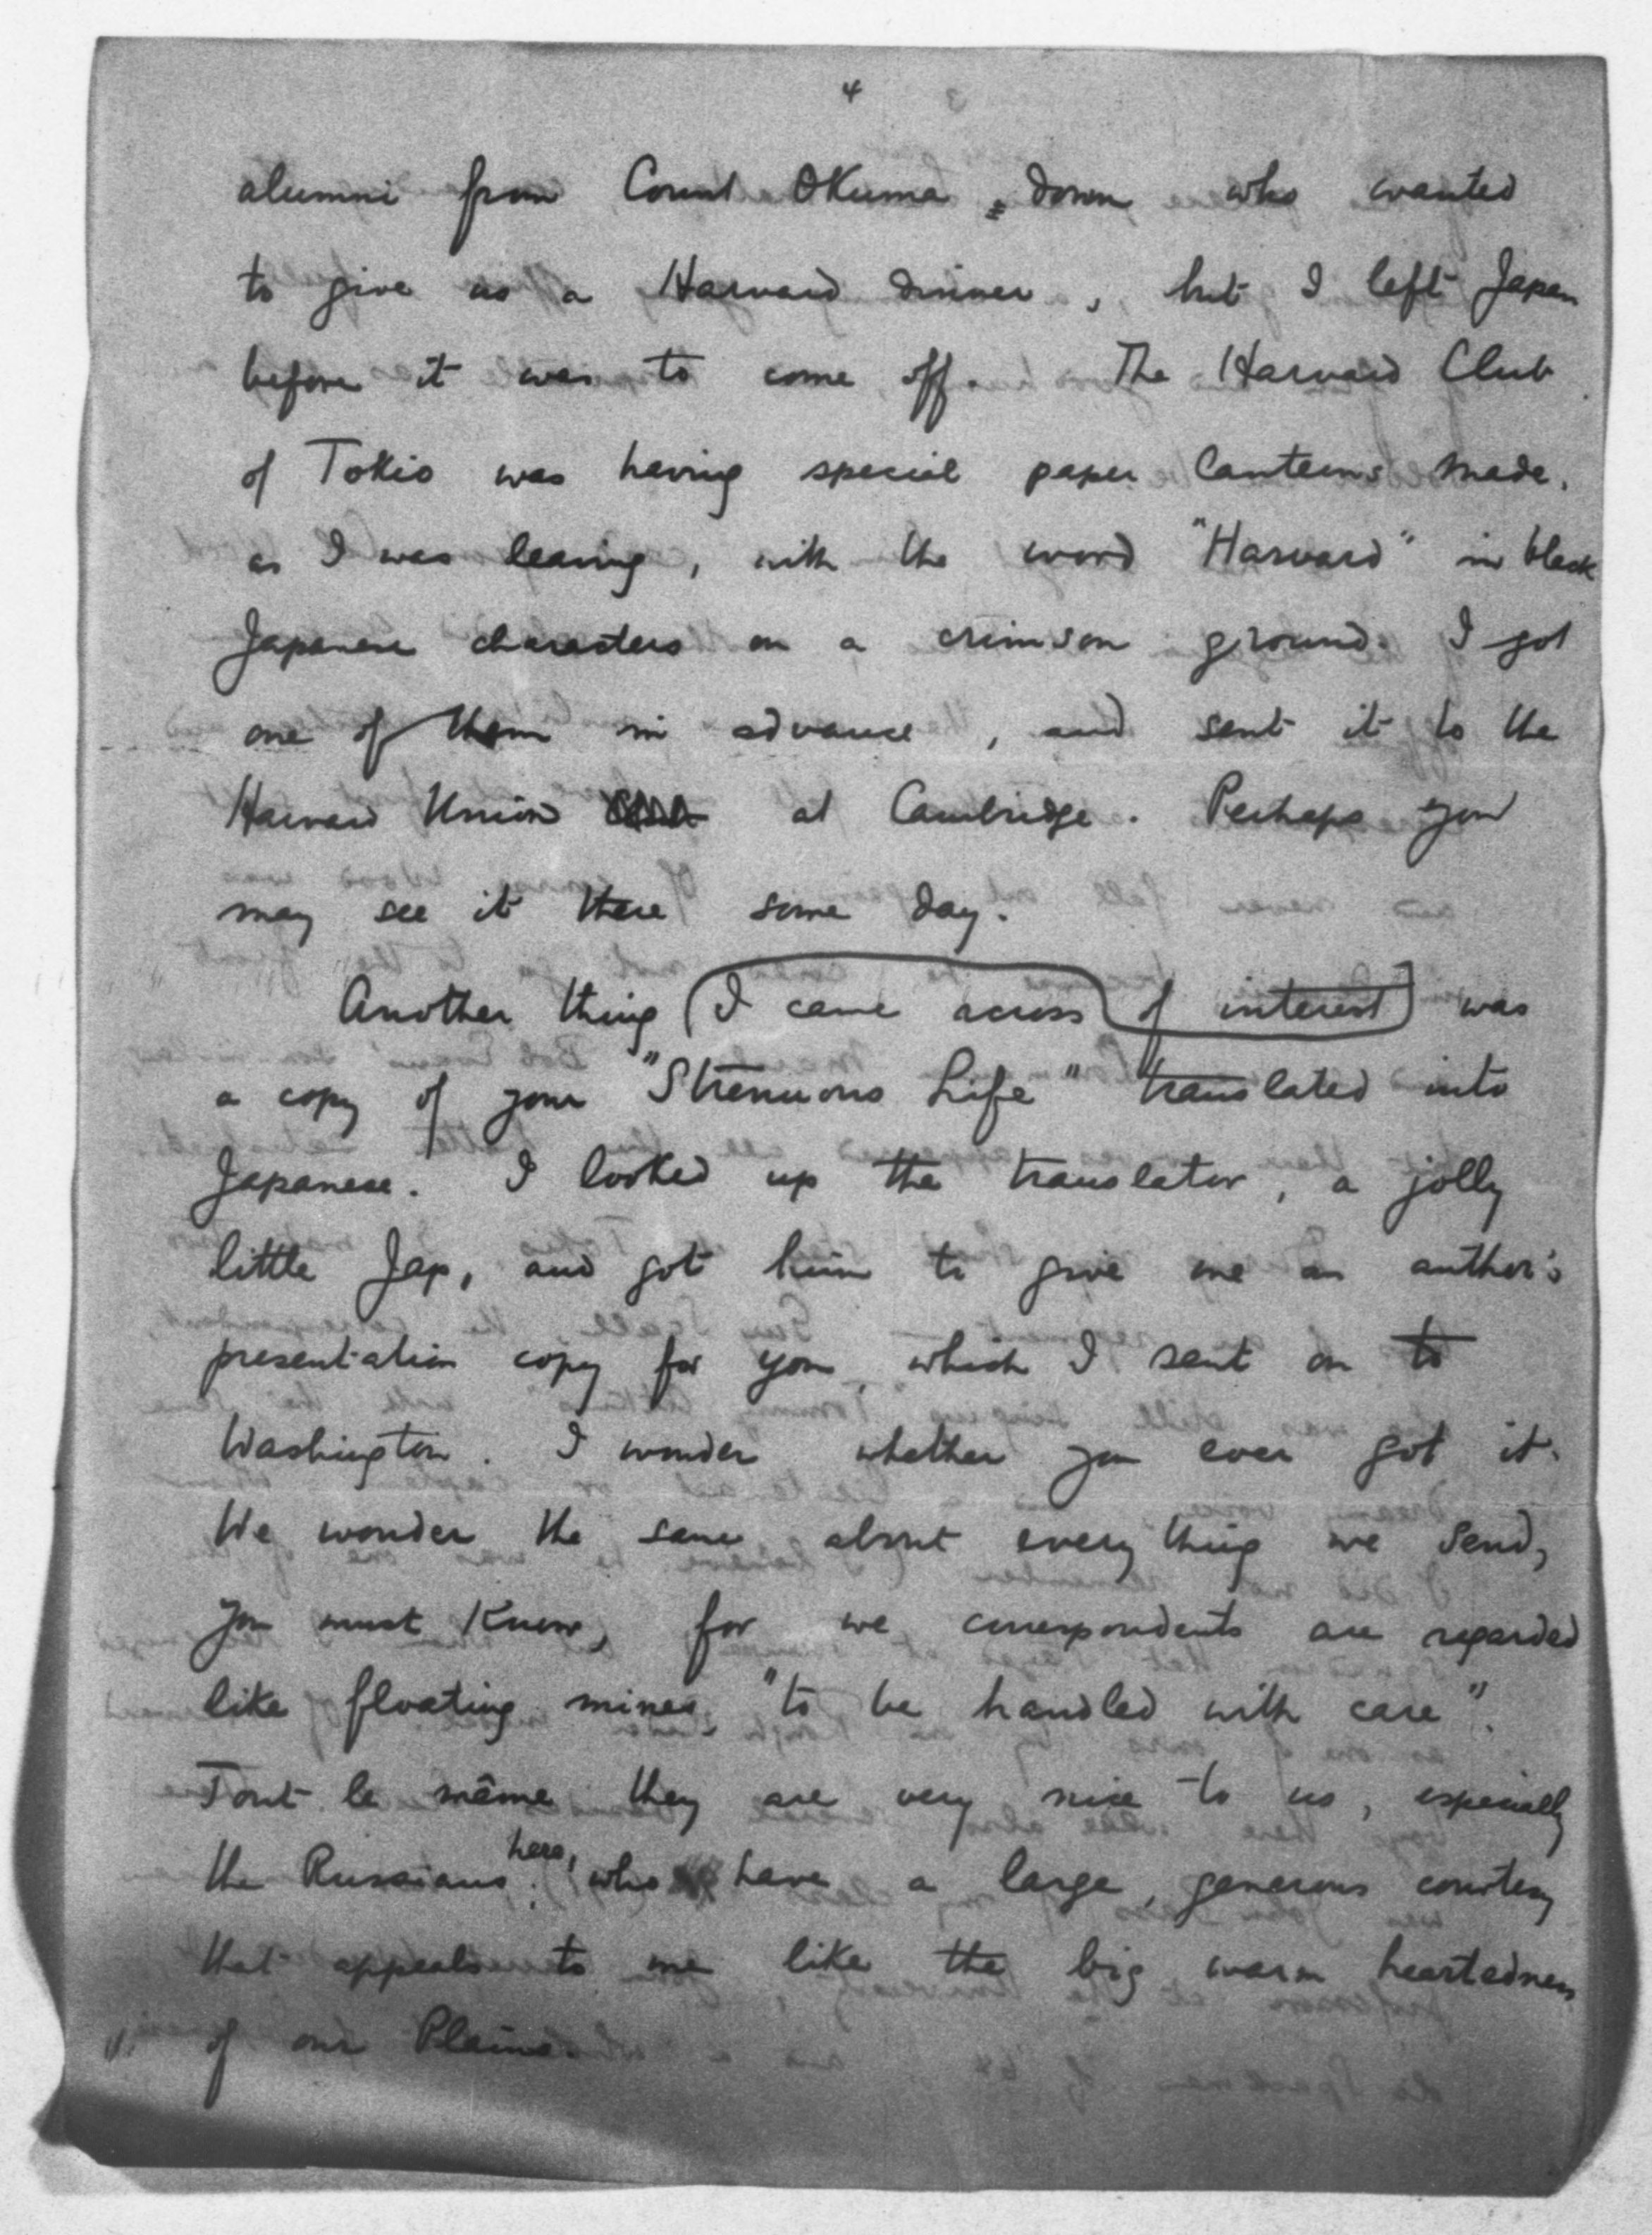 4
alumni from Count Okuma down who wanted
to give us a Harvard dinner, but I left Japan
before it was to come off. The Harvard Club
of Tokio was having special paper lanterns made,
as I was leaving, with the word "Harvard" in black
Japanese characters on a crimson ground. I got
one of them in advance, and sent it to the
Harvard Union at Cambridge. Perhaps you
may see it there some day.
Another thing I came across of interest was
a copy of your "Strenuous Life" translated into
Japanese. I looked up the translator, a jolly
little Jap, and got him to give me an author's
presentation copy for you, which I sent on to
Washington. I wonder whether you ever got it.
We wonder the same about every thing we send,
you must know, for we correspondents are regarded
like floating mines, "to be handled with care".
Tout le même they are very nice to us, especially
the Russians here, who have a large, generous courtesy
that appeals to me like the big warm heartedness
of our Plains.